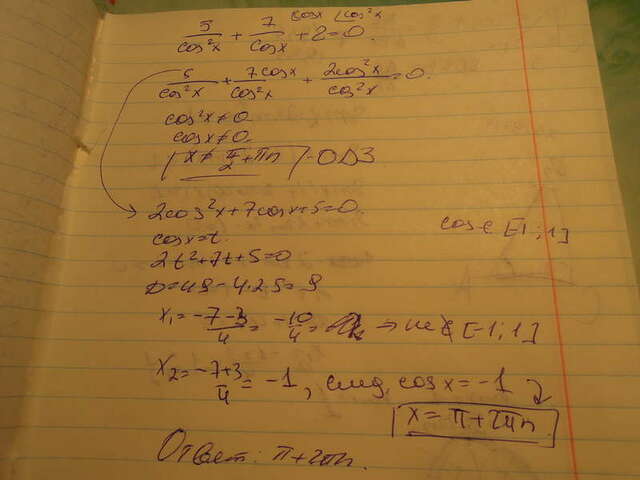 5/cos²x + 7/cosx + 2 = 0. cosx | cos²x
5/cos²x + 7cosx/cos²x + 2cos²x/cos²x = 0.
cos²x ≠ 0
cosx ≠ 0.
x ≠ π/2 + πn - ОДЗ
2cos²x + 7cosx + 5 = 0.
cosx = t.
cos ∈ [-1; 1]
2t² + 7t + 5 = 0
D = 49 - 4·2·5 = 9
x₁ = -7-3/4 = -10/4 = ⇒ не ∈ [-1; 1]
x₂ = -7+3/4 = -1, след, cos x = -1
x = π + 2πn
Ответ: π + 2πn.